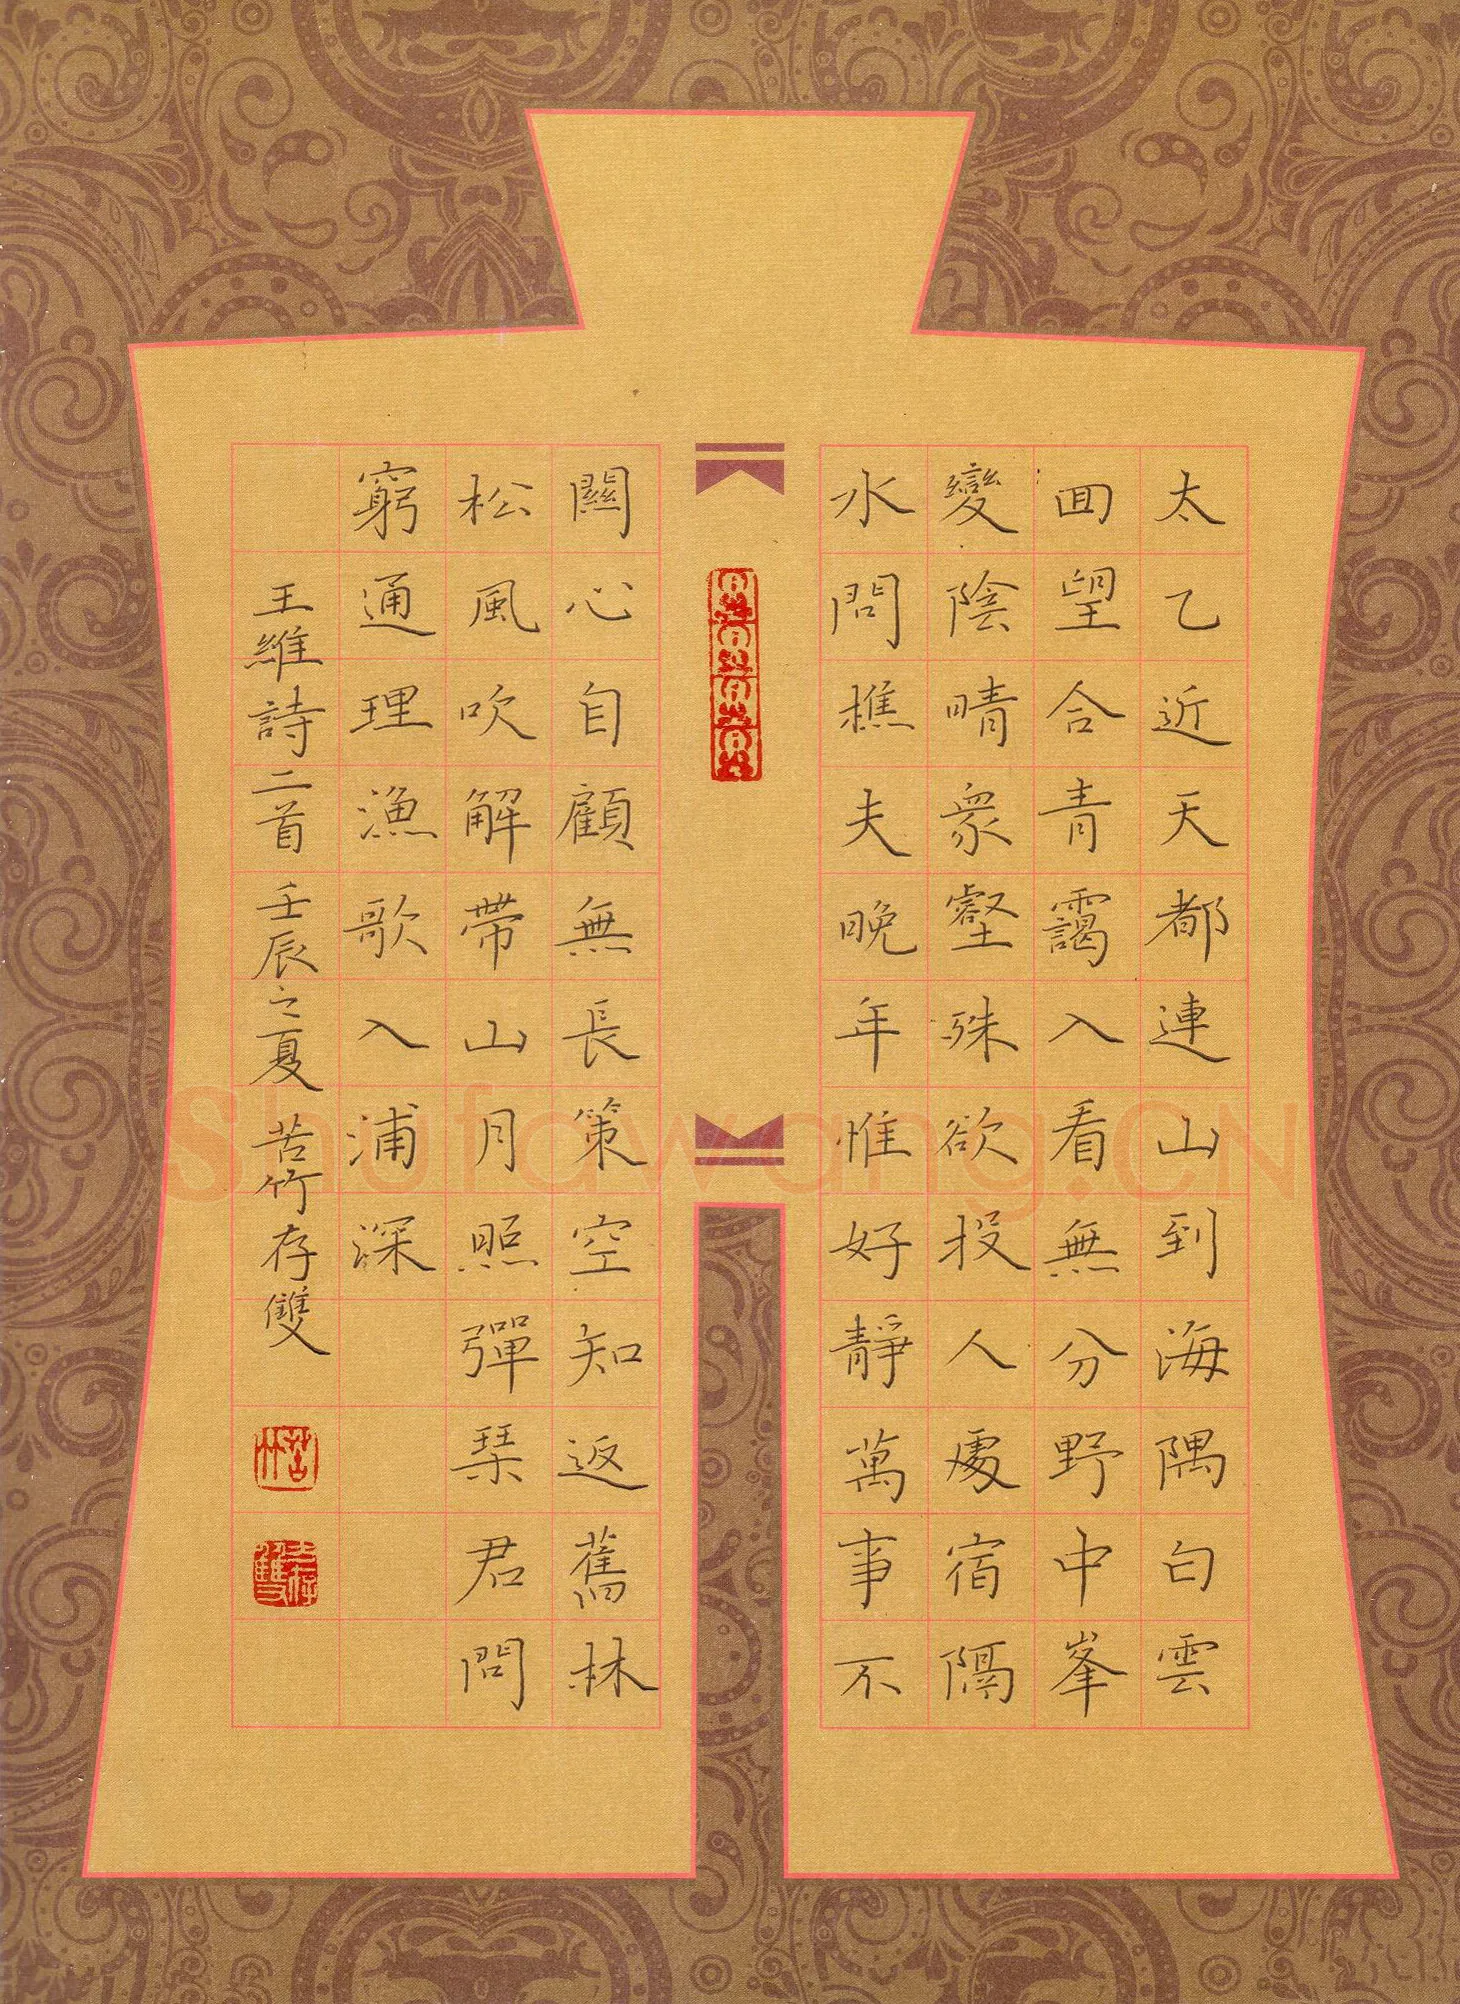 太乙近天都連山到海隅白雲
回望合青靄入看無分野中峯
變陰晴衆壑殊欲投人處宿隔
水問樵夫晚年惟好靜萬事不
關心自顧無長策空知返舊林
松風吹解帶山月照彈琹君問
窮通理漁歌入浦深
王維詩二首 壬辰之夏 苦竹存雙
苦竹
存雙
Shufawang.CN